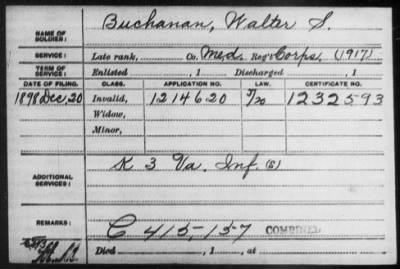 NAME OF SOLDIER: Buchanan, Walter S.
SERVICE: Late rank, Co. Med. Reg't Corps. (1917)
TERM OF SERVICE: Enlisted , 1 Discharged , 1
DATE OF FILING. CLASS. APPLICATION NO. LAW. CERTIFICATE NO.
1898 Dec. 20 Invalid, 1214620 1232593
Widow,
Minor,
ADDITIONAL SERVICES: K 3 Va. Inf. (S)
REMARKS: C 415-15-7 COMBINED
Died , 1 , at